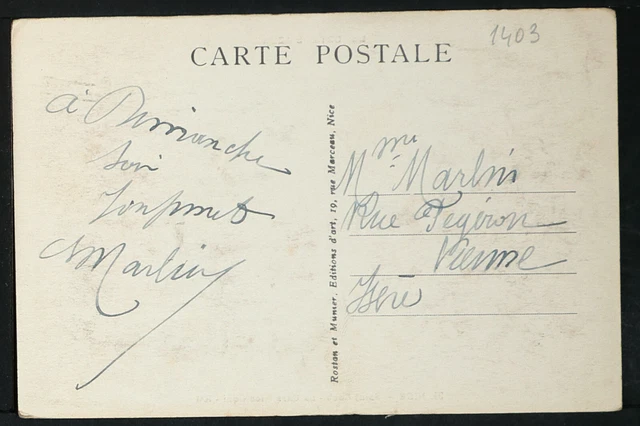 CARTE POSTALE
1403
à Dimanche
soir
Marlin
Rostan et Munier, Editions d'art, 19, rue Marceau, Nice
Mme Marlin
Rue Pégéron
Vienne
Isère